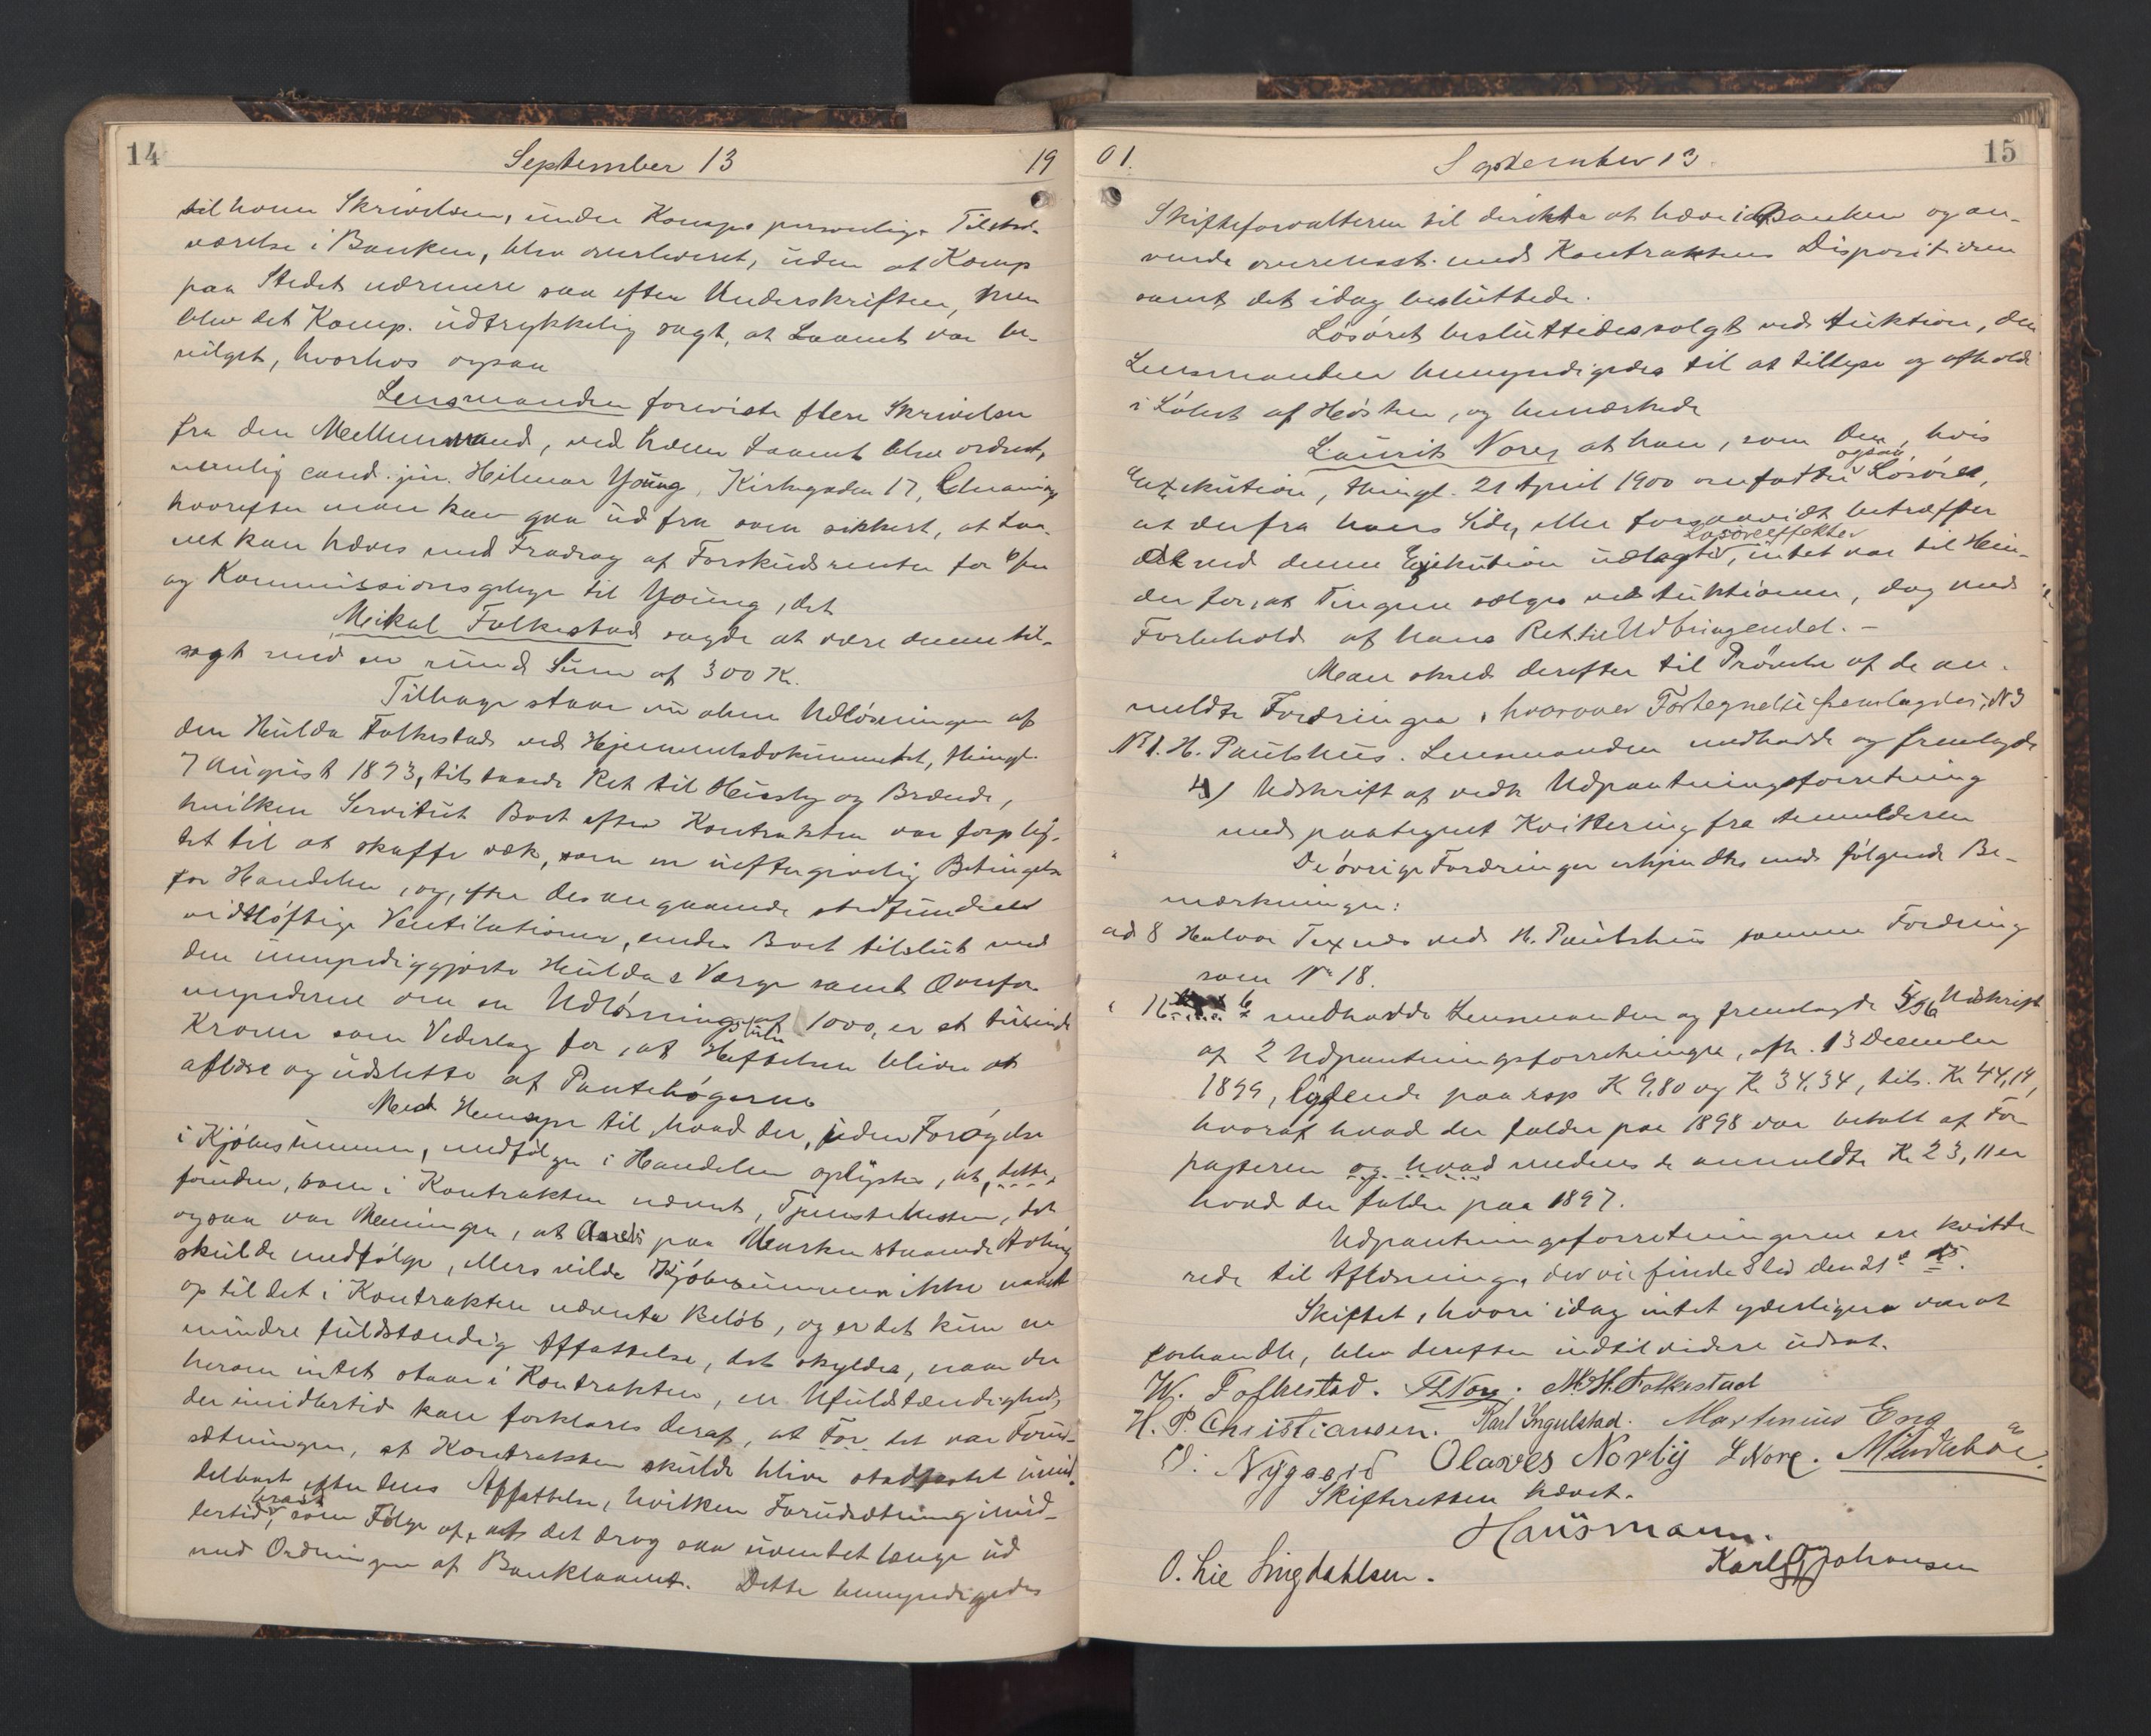 14
September 13
19
til ham Skrivelsen, under Komps personlige Tilsted-
værelse i Banken, blev overleveret, uden at Komp
paa Stedet nærmere saa efter Underskriften, men
blev det Komp. udtrykkelig sagt, at Laanet var be-
vilget, hvorhos ogsaa
Lensmanden foreviste flere Skrivelser
fra den Mellemmand, ved hvem Laanet blev ordnet,
nemlig cand. jur. Hilmar Young, Kirkegaden 17,
hvorefter man kan gaa ud fra som sikkert, at Laa-
net kan hæves med Fradrag af Forskudsrenter for
og Kommissionsgebyr til Young, det
Mikal Folkestad sagde at være denne til-
sagt med en rund Sum af 300 Kr.
Tilbage staar nu alene Udløsningen af
den Hulda Folkestad ved Hjemmelsdokumentet, thingl.
7 August 1893, tilstaaede Ret til Huusly og Brænde,
hvilken Servitut Boet efter Kontrakten var forplig-
tet til at skaffe væk, som en ueftergivelig Betingelse
for Handelen, og, efter desangaaende stedfundne
vidtløftige Ventilationer, endes Boet tilslut med
den umyndiggjorte Huldas Værge samt Overfor-
mynderne om en Udløsningssum af 1000, er et tusinde
Kroner som Vederlag for, at Heftelsen bliver at
aflæse og udslette af Pantebøgerne
Med Hensyn til, hvad der, uden Forøgelse
i Kjøbesummen, medfølger i Handelen oplystes, at, dette,
foruden, som i Kontrakten nævnt, det
ogsaa var Meningen, at Aarets paa Marken staaende Avling
skulde medfølge, ellers vilde Kjøbesummen ikke naaet
op til det i Kontrakten nævnte Beløb, og er det kun en
mindre fuldstændig Affattelse, det skyldes, naar der
herom intet staar i Kontrakten, en Ufuldstændighed,
der imidlertid kan forklares deraf, at Før det var Forud-
sætningen, at Kontrakten skulde blive stadfæstet umid-
delbart efter dens Affattelse, hvilken Forudsætning imid-
lertid brast, som Følge af, at det drog saa uventet længe ud
med Ordningen af Banklaanet. Dette bemyndigedes
01.
September 13.
15
Skifteforvalteren til direkte at hæve i Banken og an-
vende overensst. med Kontraktens Disposition
samt det idag besluttede.
Løsøret besluttedes solgt ved Auktion, den
Lensmanden bemyndigedes til at tillyse og afholde
i Løbet af Høsten, og bemærkede
Laurits Nore, at han, som den, hvis
Exekution, thingl. 21 April 1900 omfatter ogsaa Løsøret,
at der fra hans Side, eller forsaavidt betræffer
de ved denne Exekution udlagte Løsøreeffekter, intet var til Hin-
der for, at Tingene sælges ved Auktionen, dog med
Forbehold af hans Ret til Udbringendet. -
Man skred derefter til Prøvelse af de an-
meldte Fordringer, hvorover Fortegnelse fremlagdes, N 3
No 1. H. Paulshus. Lensmanden medhadde og fremlagde
4/ Udskrift af vedk Udpantningsforretning
med paategnet Kvittering fra Anmelderen
De øvrige Fordringer erkjendtes med følgende Be-
mærkninger:
ad 8 Halvor ved H. Paulshus samme Fordring
som No 18.
" 16 medhadde Lensmanden og fremlagde 5 & 6 Udskrift
af 2 Udpantningsforretninger, afh. 13 December
1899, lydende paa resp Kr 9,80 og Kr 34,34, tils. Kr 44,14,
hvoraf hvad der falder paa 1898 var betalt af For-
pagteren og hvad medens de anmeldte Kr 23,11 er
hvad der falder paa 1897.
Udpantningsforretningerne ere kvitte-
rede til Aflæsning, der vil finde Sted den
Skiftet, hvori idag intet yderligere var at
forhandle, blev derefter indtil videre udsat.
W. Folkestad. Th Nore. M. H. Folkestad
H. P. Christiansen. Karl Ingulstad. Martinius Eng
O. Nygaard Olaves Norby L Nore. Mindebøe.
Skifteretten hævet.
Hausmann.
O. Lie Singdahlsen. Karl G Johansen